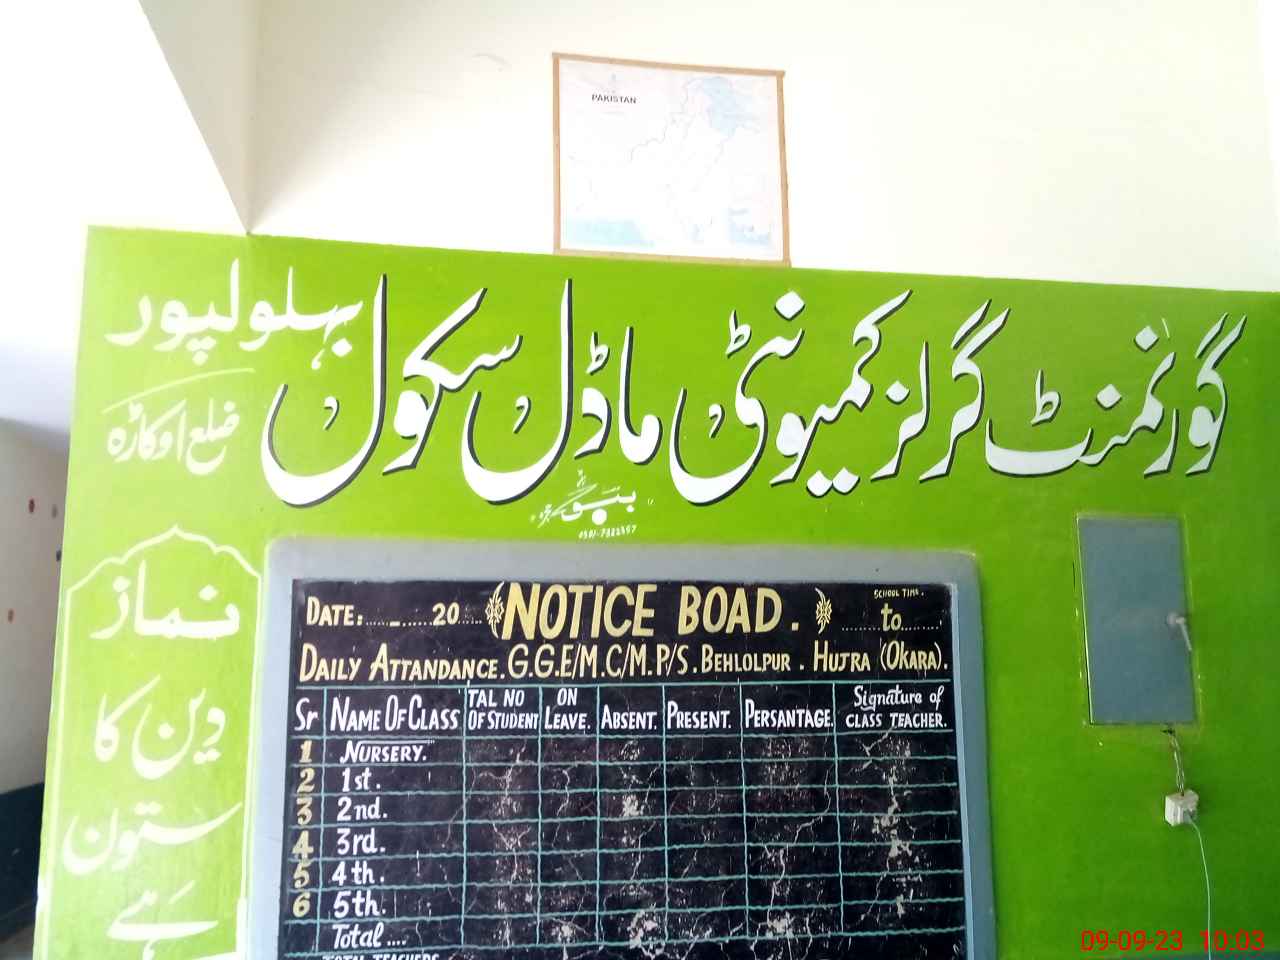 PAKISTAN
گورنمنٹ گرلز کمیونٹی ماڈل سکول
بہلولپور
ضلع اوکاڑہ
0301-7322357
نماز
دین کا
ستون
ہے
DATE:......-......20..... NOTICE BOAD. SCHOOL TIME. ........to........
DAILY ATTANDANCE. G.G.E/M.C/M.P/S. BEHLOLPUR. HUJRA (OKARA).
Sr NAME OF CLASS TAL NO OF STUDENT ON LEAVE. ABSENT. PRESENT. PERSANTAGE. Signature of CLASS TEACHER.
1 NURSERY.
2 1st.
3 2nd.
4 3rd.
5 4th.
6 5th.
Total ....
TOTAL TEACHERS
09-09-23 10:03